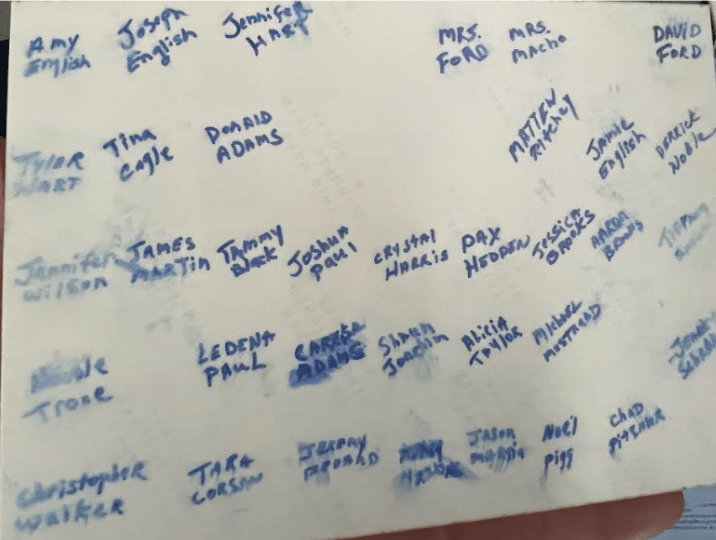 Amy English
Joseph English
Jennifer HART
MRS. FORD
MRS. Macho
DAVID FORD
TYLER HART
Tina Cagle
DONALD ADAMS
MATTEW Ritchey
JAMIE English
DERRICK Noble
Jennifer Wilson
JAMES MARTIN
TAMMY Black
JoShua Paul
CRYSTAL HARRIS
DAX HEDDEN
Jessica BROOKS
AARON
Trone
LEDENA PAUL
ADAMS
Shawn
Alicia TAYLOR
Michael
Christopher Walker
TARA
JEREMY
JASON MARTIN
Noel Pigg
CHAD